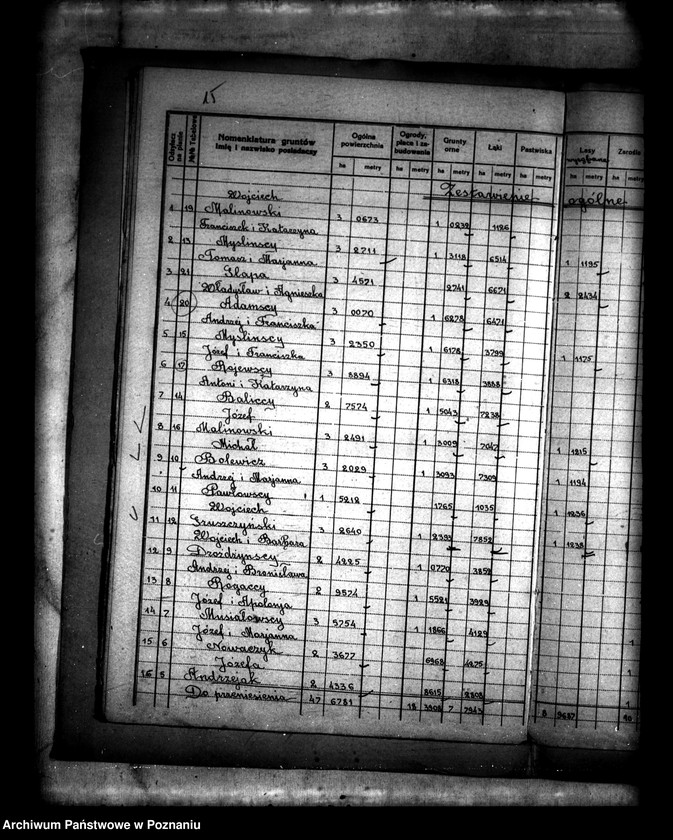 15
Nomenklatura gruntów
Imię i nazwisko posiadaczy
Ogólna powierzchnia
Ogrody, place i zabudowania
Grunty orne
Łąki
Pastwiska
Lasy
Zarośla
ha metry ha metry ha metry ha metry ha metry ha metry ha
Zestawienie ogólne
Wojciech
1 19 Malinowski 3 0673 1 0232 1126
Franciszek i Katarzyna
2 13 Myslinscy 3 2711 1 3118 6514 1 1195
Tomasz i Marjanna
3 21 Slapa 3 4521 2741 6671 2 2434
Władysław i Agnieszka
4 20 Adamscy 3 0020 1 6278 6471
Andrzej i Franciszka
5 15 Myslinscy 3 2350 1 6178 3799 1 1175
Józef i Franciszka
6 17 Rajewscy 3 8894 1 6318 3888
Antoni i Katarzyna
7 14 Baliccy 2 7574 1 5043 7238
Józef
8 16 Malinowski 3 2491 1 3009 7047 1 1215
Michał
9 10 Bolewicz 3 2029 1 3093 7309 1 1194
Andrzej i Marjanna
10 11 Pawłowscy 1 5212 1765 1035 1 1236
Wojciech
11 12 Gruszczyński 3 2640 1 2393 7852 1 1238
Wojciech i Barbara
12 9 Drozdzynscy 2 4225 1 0720 3852
Andrzej i Bronisława
13 8 Rogaccy 2 9574 1 5521 3929
Józef i Apolonja
14 7 Musiałowscy 3 5754 1 1866 4129 1
Józef i Marjanna
15 6 Nowaczyk 2 3677 6968 4275 1
Józefa
16 5 Andrzejak 2 4336 8615 2808 1
Do przeniesienia 47 6781 18 3908 7 7943 8 9687 10
Archiwum Państwowe w Poznaniu